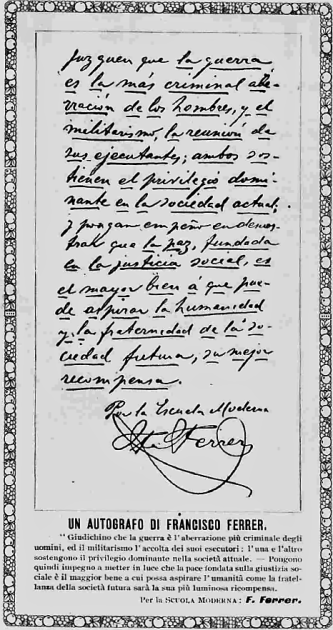 Juzguen que la guerra
es la más criminal abe-
rración de los hombres, y el
militarismo, la reunión de
sus ejecutantes; ambos sos-
tienen el privilegio domi-
nante en la sociedad actual;
y pongan empeño en demos-
trar que la paz, fundada
en la justicia social, es
el mayor bien á que pue-
de aspirar la humanidad
y la fraternidad de la so-
ciedad futura, su mejor
recompensa.
Por la Escuela Moderna
F. Ferrer
UN AUTOGRAFO DI FRANCISCO FERRER.
" Giudichino che la guerra è l'aberrazione più criminale degli
uomini, ed il militarismo l'accolta dei suoi esecutori: l'una e l'altro
sostengono il privilegio dominante nella società attuale. — Pongono
quindi impegno a metter in luce che la pace fondata sulla giustizia so-
ciale è il maggior bene a cui possa aspirare l'umanità come la fratel-
lanza della società futura sarà la sua più luminosa ricompensa.
Per la SCUOLA MODERNA: F. Ferrer.